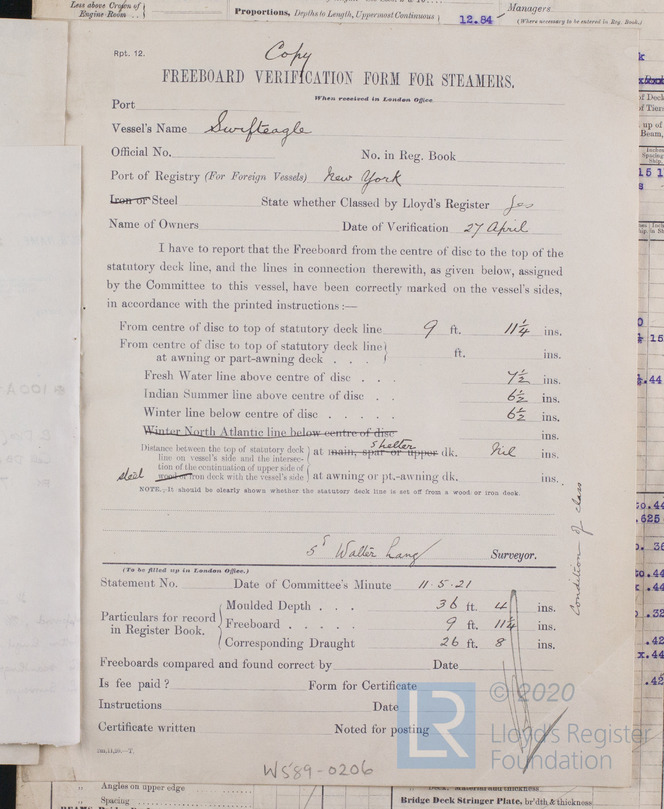 Less above Crown of
Engine Room
Proportions, Depths to Length, Uppermost Continuous
12.84
Managers
(Where necessary to be entered in Reg. Book.)
Rpt. 12.
Copy
FREEBOARD VERIFICATION FORM FOR STEAMERS.
When received in London Office.
Port
Vessel's Name Swifteagle
Official No. No. in Reg. Book
Port of Registry (For Foreign Vessels) New York
Iron or Steel State whether Classed by Lloyd's Register Yes
Name of Owners Date of Verification 27 April
I have to report that the Freeboard from the centre of disc to the top of the
statutory deck line, and the lines in connection therewith, as given below, assigned
by the Committee to this vessel, have been correctly marked on the vessel's sides,
in accordance with the printed instructions :—
From centre of disc to top of statutory deck line 9 ft. 11¼ ins.
From centre of disc to top of statutory deck line
at awning or part-awning deck . . . ft. ins.
Fresh Water line above centre of disc . . . 7½ ins.
Indian Summer line above centre of disc . . 6½ ins.
Winter line below centre of disc . . . . . 6½ ins.
Winter North Atlantic line below centre of disc ins.
Distance between the top of statutory deck
line on vessel's side and the intersec-
tion of the continuation of upper side of
steel wood or iron deck with the vessel's side
at main, spar or upper shelter dk. Nil ins.
at awning or pt.-awning dk. ins.
NOTE.—It should be clearly shown whether the statutory deck line is set off from a wood or iron deck.
Condition of class
Walter Lang Surveyor.
(To be filled up in London Office.)
Statement No. Date of Committee's Minute 11.5.21
Particulars for record
in Register Book.
Moulded Depth . . . 36 ft. 4 ins.
Freeboard . . . . . 9 ft. 11¼ ins.
Corresponding Draught 26 ft. 8 ins.
Freeboards compared and found correct by Date
Is fee paid ? Form for Certificate
Instructions Date
Certificate written Noted for posting
W589-0206
LR
© 2020
Lloyd's Register
Foundation
Angles on upper edge
Spacing
Bridge Deck Stringer Plate, br'dth & thickness